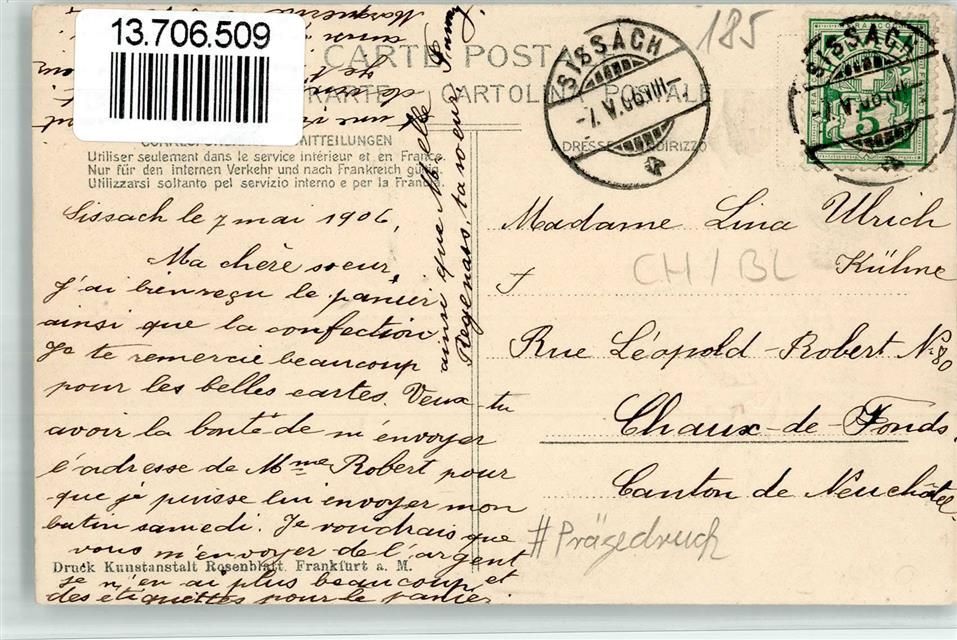 13.706.509
185
CARTE POSTA
KARTE CARTOLINA POSTALE
MITTEILUNGEN
ADRESSE INDIRIZZO
Utiliser seulement dans le service intérieur et en France.
Nur für den internen Verkehr und nach Frankreich gültig.
Utilizzarsi soltanto pel servizio interno e per la Francia.
SISSACH
-7.V.06.VIII-
SISSACH
5
Sissach le 7 mai 1906,
Ma chère soeur,
J'ai bien reçu le panier
ainsi que la confection
Je te remercie beaucoup
pour les belles cartes. Veux tu
avoir la bonté de m'envoyer
l'adresse de Mme Robert pour
que je puisse lui envoyer mon
butin samedi. Je voudrais que
vous m'envoyer de l'argent
je n'en ai plus beaucoup et
des étiquettes pour le panier.
Druck Kunstanstalt Rosenblatt Frankfurt a. M.
ainsi que Melle
ta soeur, Fanny.
Madame Lina Ulrich
Kühne
CH/BL
Rue Léopold-Robert No 80
Chaux-de-Fonds.
Canton de Neuchâtel.
#Prägedruck